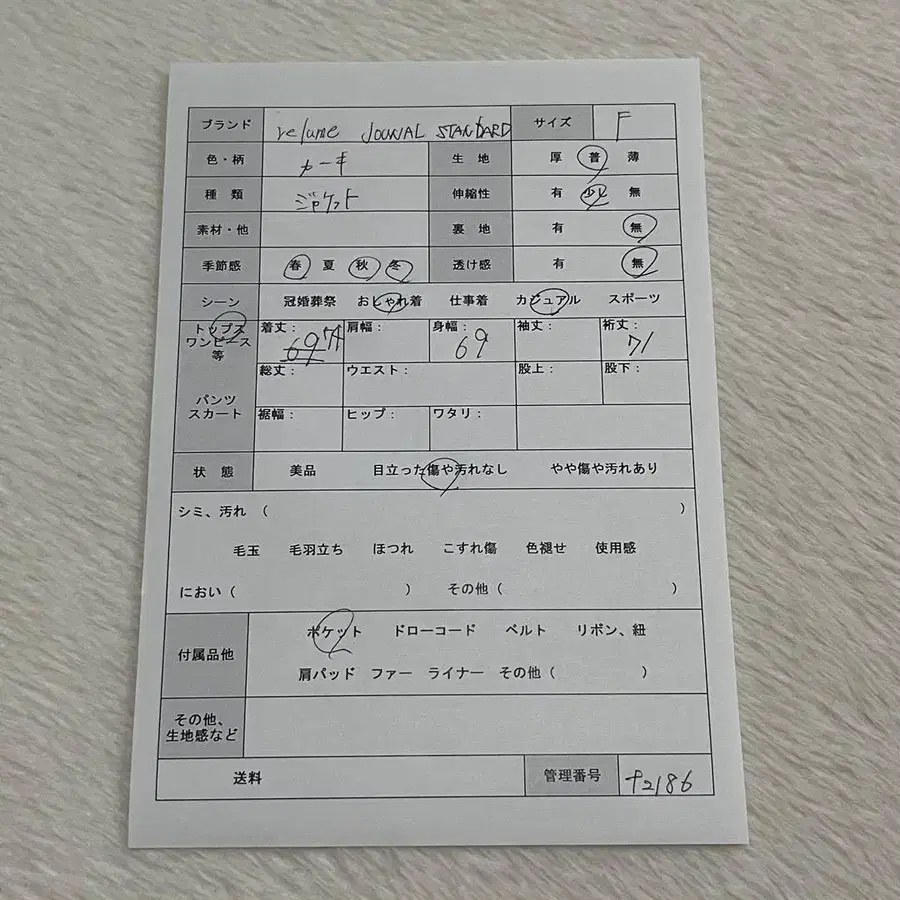 ブランド relume JOUNAL STANDARD サイズ F
色・柄 カーキ 生地 厚 普 薄
種類 ジャケット 伸縮性 有 少し 無
素材・他 裏地 有 無
季節感 春 夏 秋 冬 透け感 有 無
シーン 冠婚葬祭 おしゃれ着 仕事着 カジュアル スポーツ
トップス ワンピース 等 着丈: 69 74 肩幅: 身幅: 69 袖丈: 裄丈: 71
パンツ スカート 総丈: ウエスト: 股上: 股下:
裾幅: ヒップ: ワタリ:
状態 美品 目立った傷や汚れなし やや傷や汚れあり
シミ、汚れ ( )
毛玉 毛羽立ち ほつれ こすれ傷 色褪せ 使用感
におい ( ) その他 ( )
付属品他 ポケット ドローコード ベルト リボン、紐
肩パッド ファー ライナー その他 ( )
その他、
生地感など
送料 管理番号 +2186